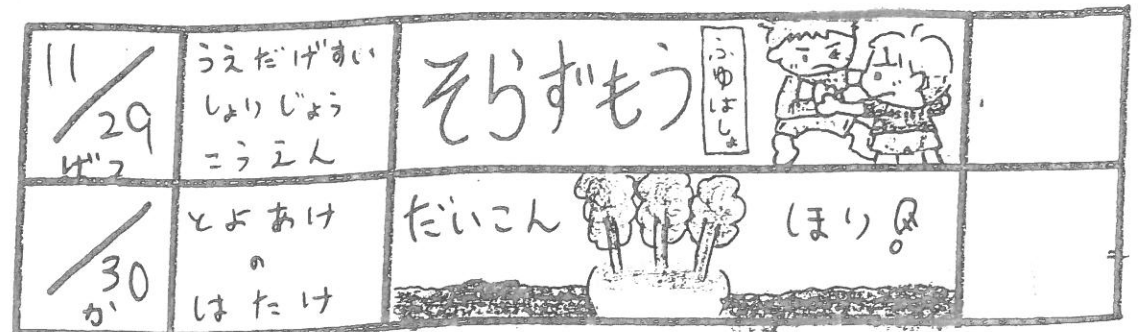 11/29
げつ
うえだげすい
しょりじょう
こうえん
そらずもう
ふゆばしょ
/30
か
とよあけ
の
はたけ
だいこん
ほり!